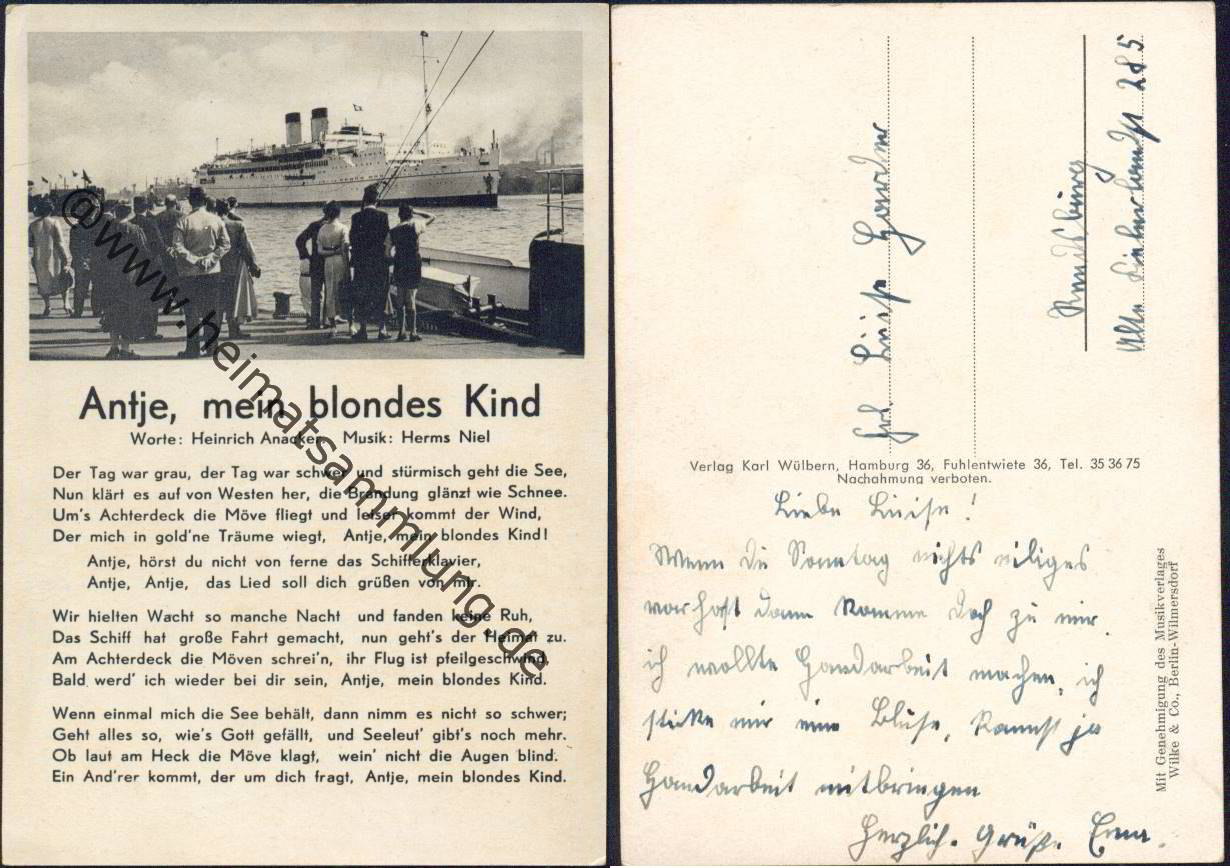 Antje, mein blondes Kind
Worte: Heinrich Anacker   Musik: Herms Niel
Der Tag war grau, der Tag war schwer und stürmisch geht die See,
Nun klärt es auf von Westen her, die Brandung glänzt wie Schnee.
Um's Achterdeck die Möve fliegt und leiser kommt der Wind,
Der mich in gold'ne Träume wiegt, Antje, mein blondes Kind!
Antje, hörst du nicht von ferne das Schifferklavier,
Antje, Antje, das Lied soll dich grüßen von mir.
Wir hielten Wacht so manche Nacht und fanden keine Ruh,
Das Schiff hat große Fahrt gemacht, nun geht's der Heimat zu.
Am Achterdeck die Möven schrei'n, ihr Flug ist pfeilgeschwind,
Bald werd' ich wieder bei dir sein, Antje, mein blondes Kind.
Wenn einmal mich die See behält, dann nimm es nicht so schwer;
Geht alles so, wie's Gott gefällt, und Seeleut' gibt's noch mehr.
Ob laut am Heck die Möve klagt, wein' nicht die Augen blind.
Ein And'rer kommt, der um dich fragt, Antje, mein blondes Kind.
@www.heimatsammlung.de
Frl. Luise
285
Verlag Karl Wülbern, Hamburg 36, Fuhlentwiete 36, Tel. 35 36 75
Nachahmung verboten.
Liebe Luise!
Wenn Du Sonntag nichts eiliges
vorhast dann komme doch zu mir.
ich wollte Handarbeit machen, ich
sticke mir eine Bluse, kannst ja
Handarbeit mitbringen
Herzlich. Grüße Erna.
Mit Genehmigung des Musikverlages
Wilke & Co., Berlin-Wilmersdorf